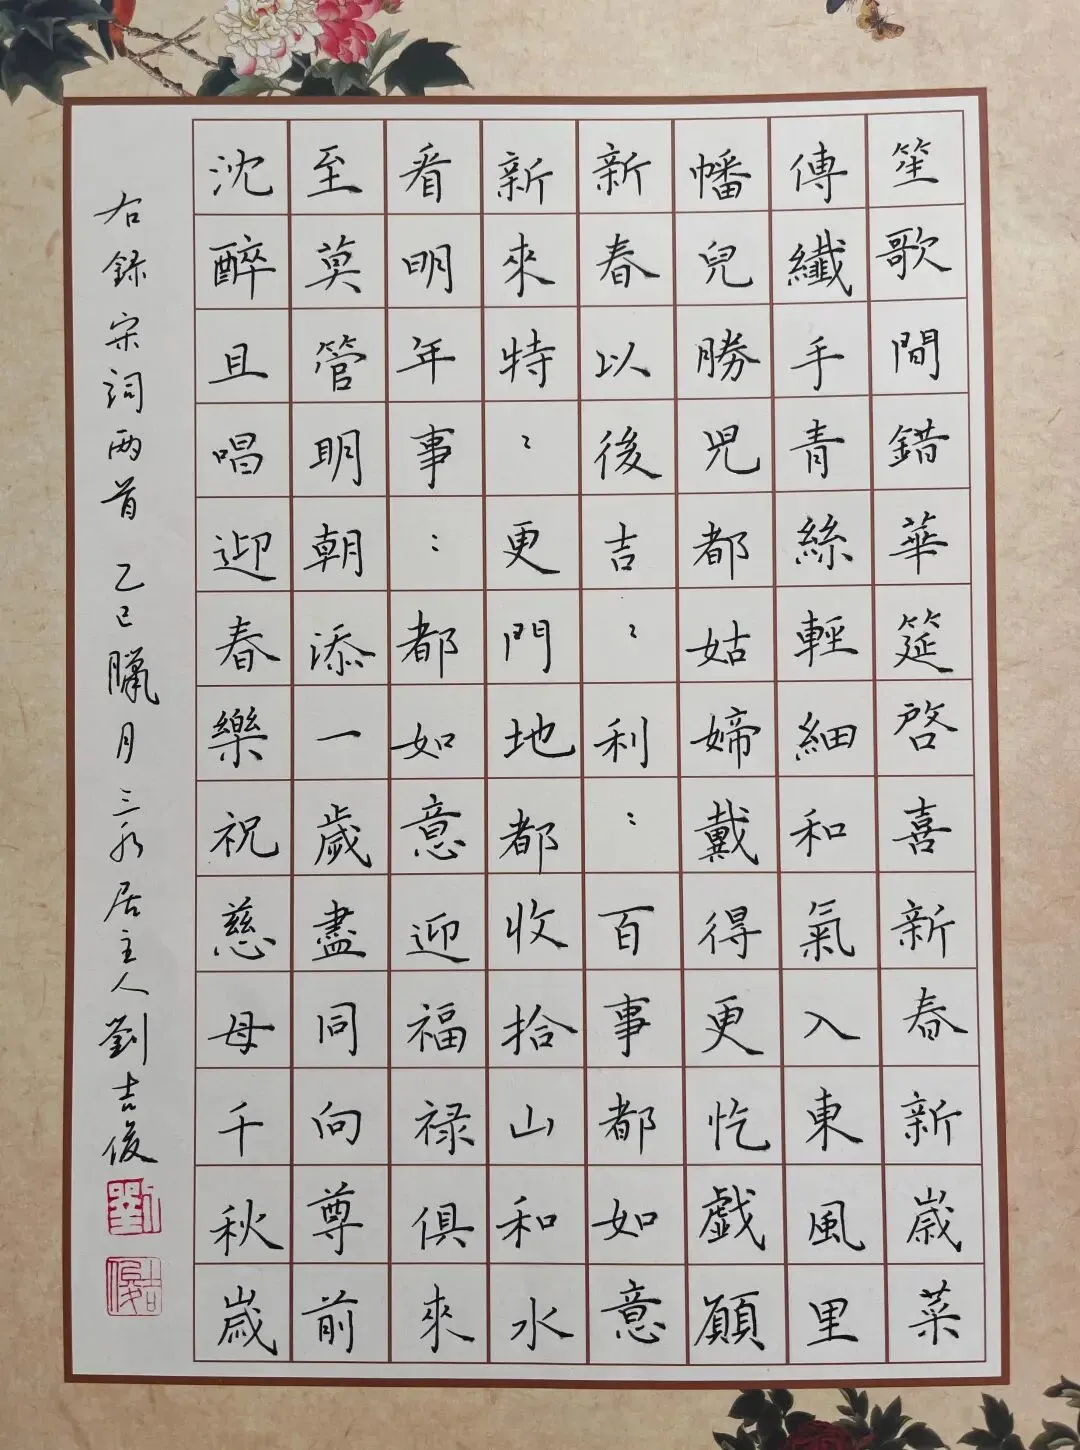 笙歌間錯華筵啓喜新春新歲菜
傳纖手青絲輕細和氣入東風里
幡兒勝兒都姑媂戴得更忔戲願
新春以後吉〻利〻百事都如意
新來特〻更門地都收拾山和水
看明年事〻都如意迎福禄俱來
至莫管明朝添一歲盡同向尊前
沈醉且唱迎春樂祝慈母千秋歲
右録宋词两首 乙巳臘月 三居主人劉吉俊
劉
吉俊